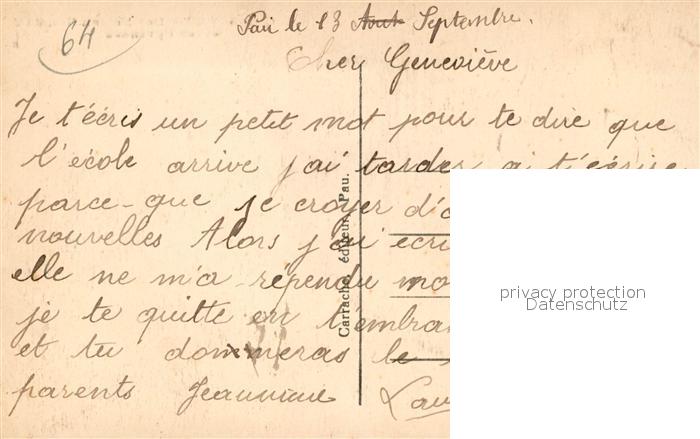 64
Pau le 13 Aout Septembre.
Cher Geneviève
Je t'écris un petit mot pour te dire que
l'école arrive j'ai tarder a t'écrire
parce-que je croyer d'a
nouvelles Alors j'ai écri
elle ne m'a répendu mo
je te quitte en t'embra
et tu dommeras le
parents Jeannine
Carrache, éditeur, Pau.
privacy protection
Datenschutz